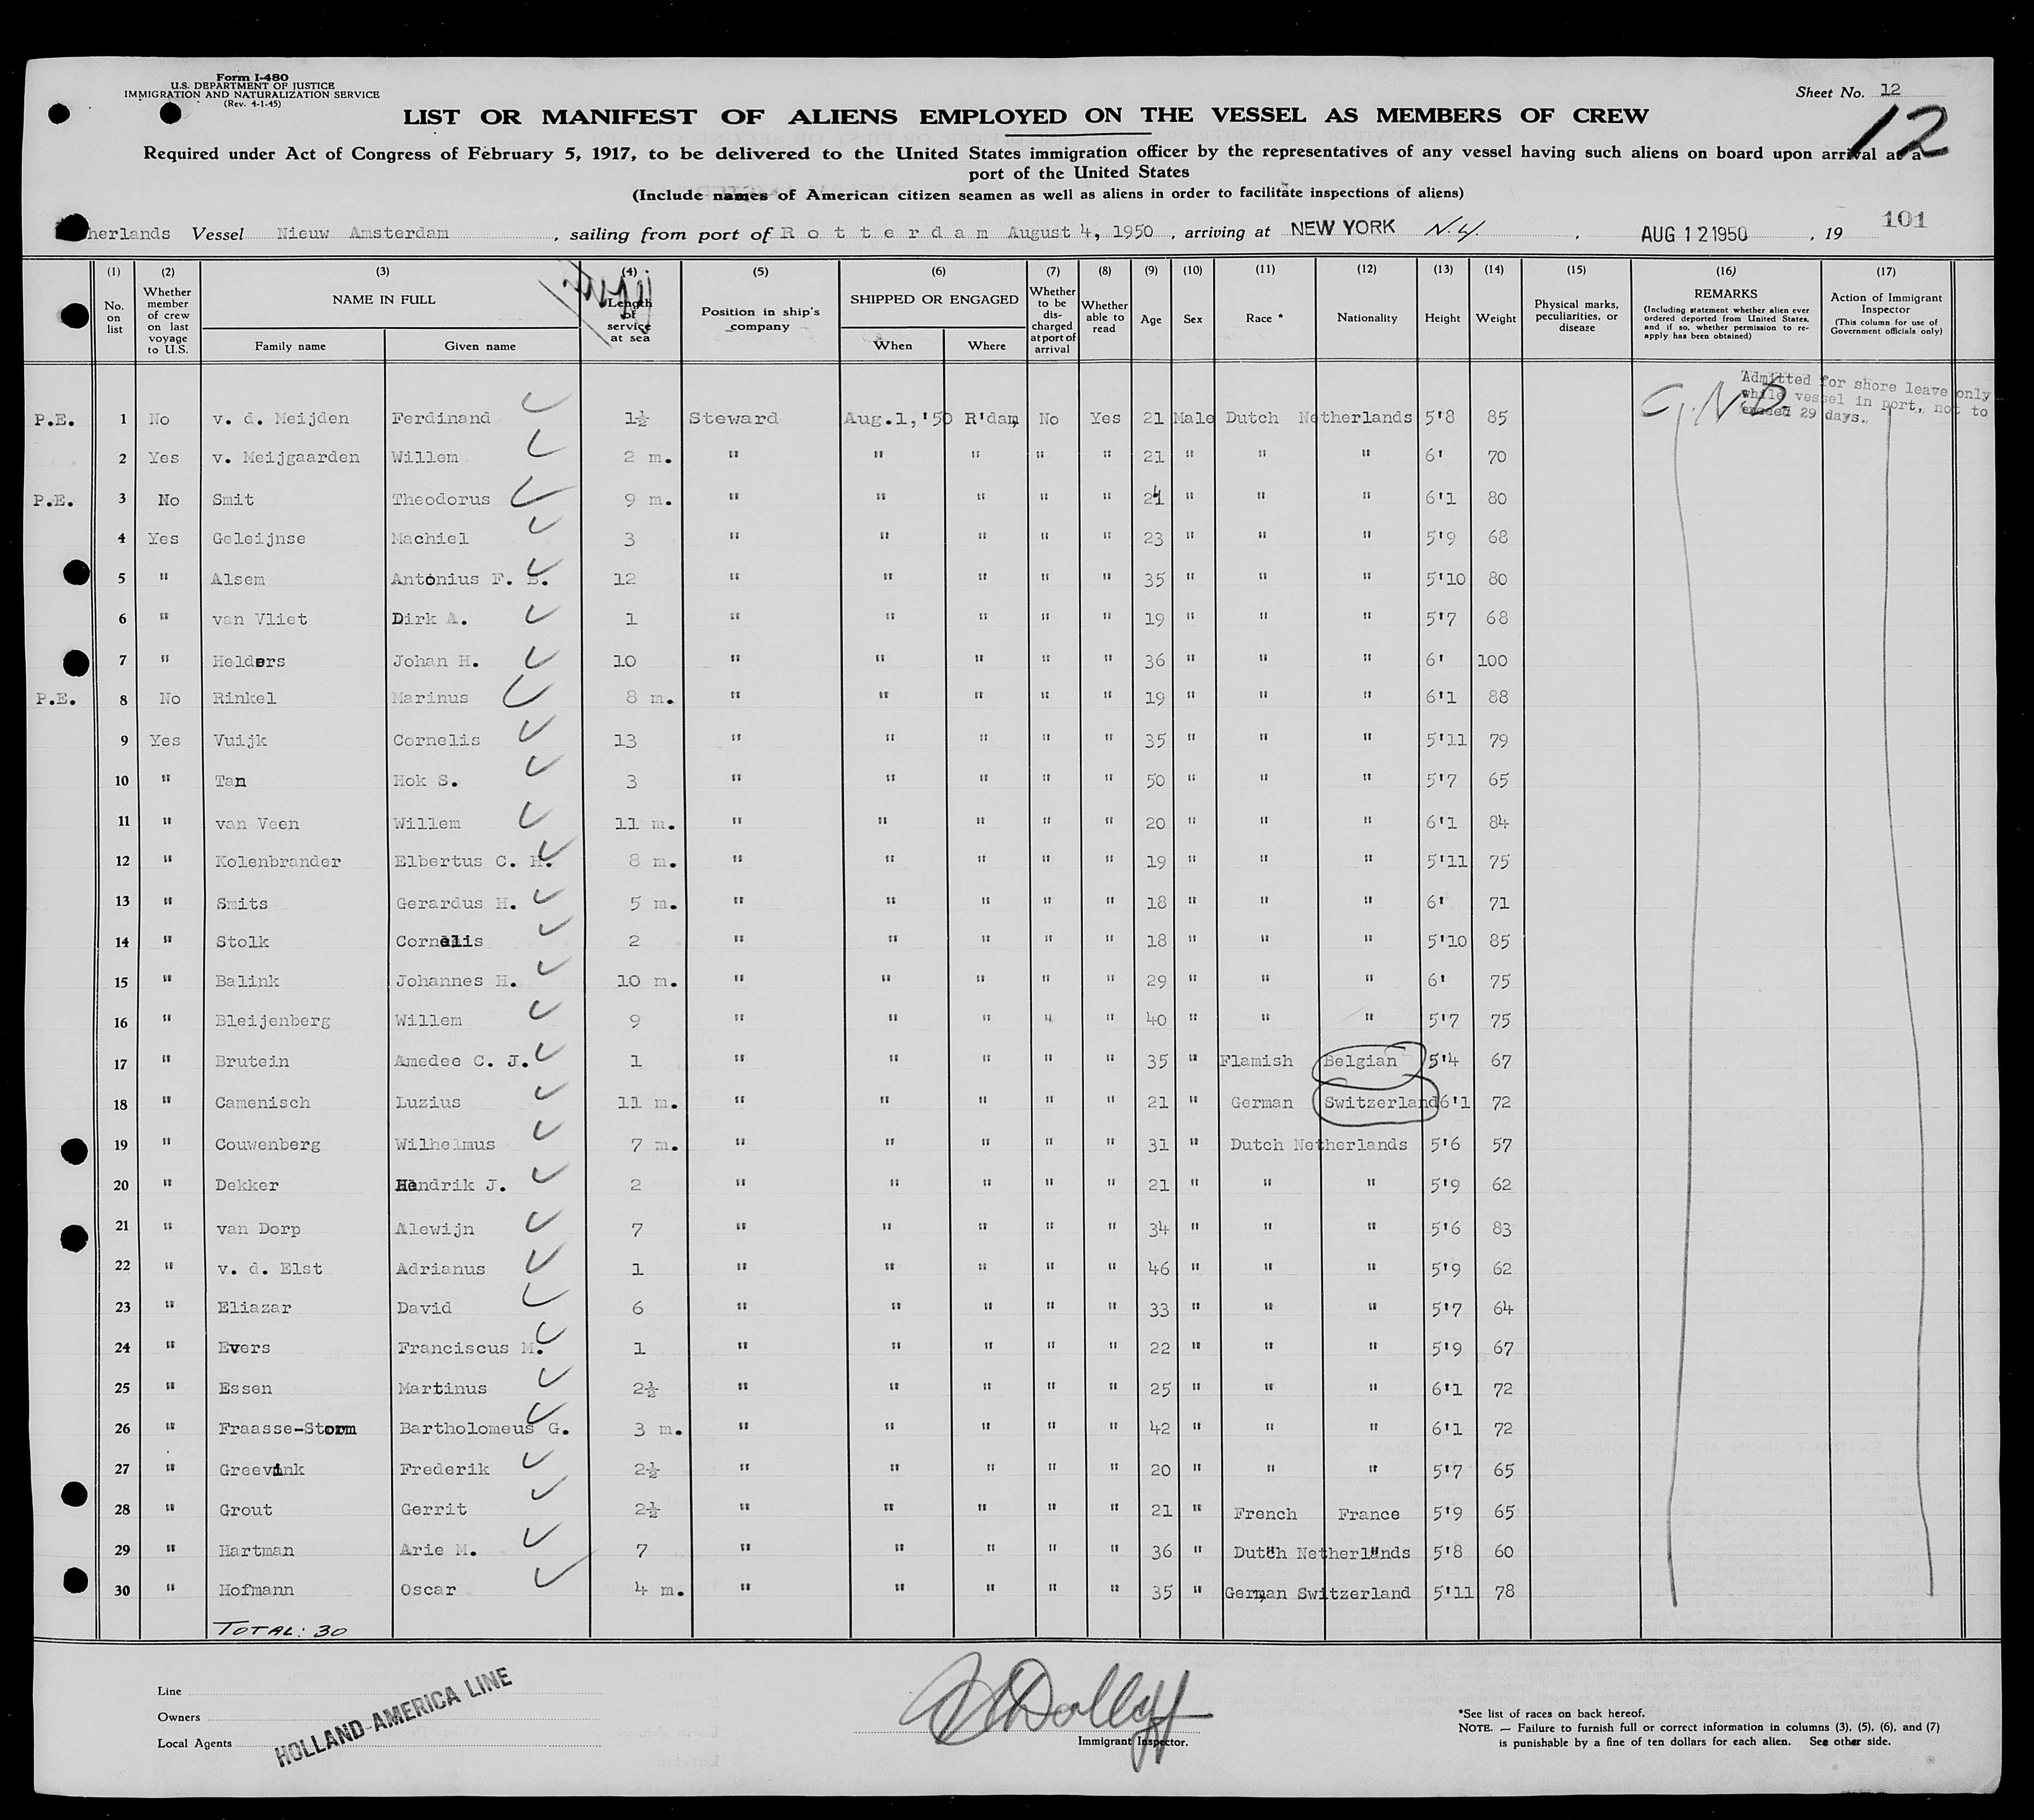 Form I-480
U.S. DEPARTMENT OF JUSTICE
IMMIGRATION AND NATURALIZATION SERVICE
(Rev. 4-1-45)
Sheet No. 12
12
LIST OR MANIFEST OF ALIENS EMPLOYED ON THE VESSEL AS MEMBERS OF CREW
Required under Act of Congress of February 5, 1917, to be delivered to the United States immigration officer by the representatives of any vessel having such aliens on board upon arrival at a
port of the United States
(Include names of American citizen seamen as well as aliens in order to facilitate inspections of aliens)
101
herlands Vessel Nieuw Amsterdam , sailing from port of Rotterdam August 4, 1950 , arriving at NEW YORK N.Y. , AUG 12 1950 , 19
(1) No. on list
(2) Whether member of crew on last voyage to U.S.
(3) NAME IN FULL
Family name Given name
(4) Length of service at sea
(5) Position in ship's company
(6) SHIPPED OR ENGAGED
When Where
(7) Whether to be discharged at port of arrival
(8) Whether able to read
(9) Age
(10) Sex
(11) Race *
(12) Nationality
(13) Height
(14) Weight
(15) Physical marks, peculiarities, or disease
(16) REMARKS
(Including statement whether alien ever ordered deported from United States, and if so, whether permission to reapply has been obtained)
(17) Action of Immigrant Inspector
(This column for use of Government officials only)
Admitted for shore leave only
while vessel in port, not to
exceed 29 days.
P.E. 1 No v. d. Meijden Ferdinand 1½ Steward Aug.1,'50 R'dam, No Yes 21 Male Dutch Netherlands 5'8 85
2 Yes v. Meijgaarden Willem 2 m. " " " " " 21 " " " 6' 70
P.E. 3 No Smit Theodorus 9 m. " " " " " 24 " " " 6'1 80
4 Yes Geleijnse Machiel 3 " " " " " 23 " " " 5'9 68
5 " Alsem Antonius F. B. 12 " " " " " 35 " " " 5'10 80
6 " van Vliet Dirk A. 1 " " " " " 19 " " " 5'7 68
7 " Helders Johan H. 10 " " " " " 36 " " " 6' 100
P.E. 8 No Rinkel Marinus 8 m. " " " " " 19 " " " 6'1 88
9 Yes Vuijk Cornelis 13 " " " " " 35 " " " 5'11 79
10 " Tan Hok S. 3 " " " " " 50 " " " 5'7 65
11 " van Veen Willem 11 m. " " " " " 20 " " " 6'1 84
12 " Kolenbrander Elbertus C. H. 8 m. " " " " " 19 " " " 5'11 75
13 " Smits Gerardus H. 5 m. " " " " " 18 " " " 6' 71
14 " Stolk Cornelis 2 " " " " " 18 " " " 5'10 85
15 " Balink Johannes H. 10 m. " " " " " 29 " " " 6' 75
16 " Bleijenberg Willem 9 " " " " " 40 " " " 5'7 75
17 " Brutein Amedee C. J. 1 " " " " " 35 " Flamish Belgian 5'4 67
18 " Camenisch Luzius 11 m. " " " " " 21 " German Switzerland 6'1 72
19 " Couwenberg Wilhelmus 7 m. " " " " " 31 " Dutch Netherlands 5'6 57
20 " Dekker Hendrik J. 2 " " " " " 21 " " " 5'9 62
21 " van Dorp Alewijn 7 " " " " " 34 " " " 5'6 83
22 " v. d. Elst Adrianus 1 " " " " " 46 " " " 5'9 62
23 " Eliazar David 6 " " " " " 33 " " " 5'7 64
24 " Evers Franciscus M. 1 " " " " " 22 " " " 5'9 67
25 " Essen Martinus 2½ " " " " " 25 " " " 6'1 72
26 " Fraasse-Storm Bartholomeus G. 3 m. " " " " " 42 " " " 6'1 72
27 " Greevink Frederik 2½ " " " " " 20 " " " 5'7 65
28 " Grout Gerrit 2½ " " " " " 21 " French France 5'9 65
29 " Hartman Arie M. 7 " " " " " 36 " Dutch Netherlands 5'8 60
30 " Hofmann Oscar 4 m. " " " " " 35 " German Switzerland 5'11 78
TOTAL: 30
Line
Owners
Local Agents
HOLLAND-AMERICA LINE
Immigrant Inspector.
*See list of races on back hereof.
NOTE. — Failure to furnish full or correct information in columns (3), (5), (6), and (7)
is punishable by a fine of ten dollars for each alien. See other side.